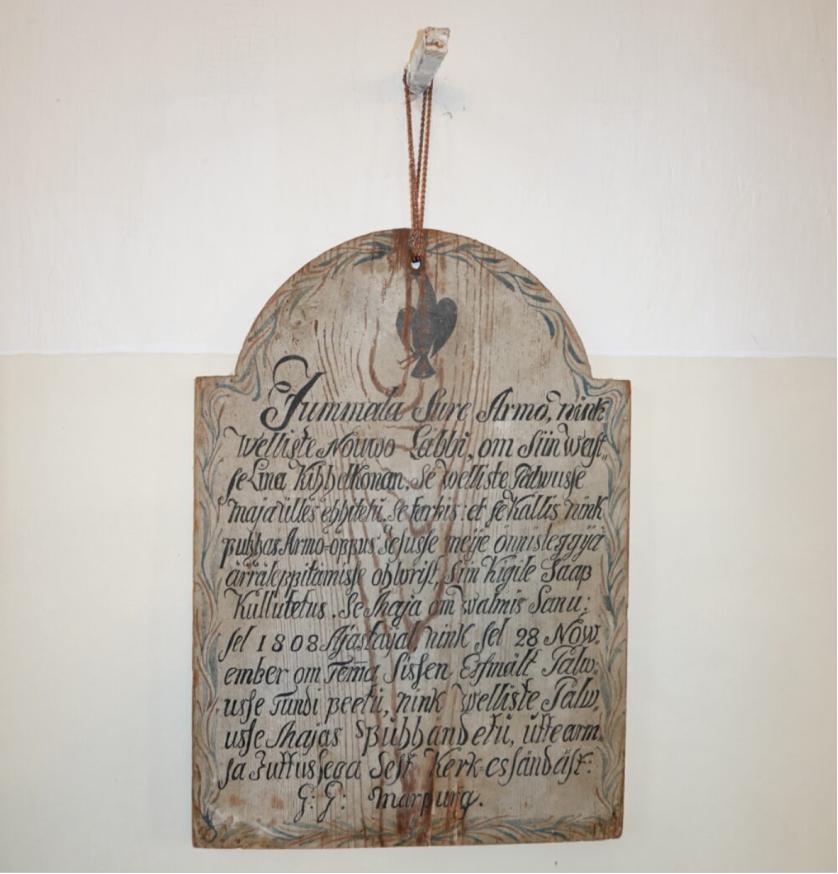 Jummala Sure Armo, nink
welliste Nouwo Läbbi, om Siin wast„
se Lina Kihhelkonan, Se welliste Palwusse
maja üllës ehhitetü. Se tarkis: et se Kallis nink
puhhas Armo-oppus Jesusse meije önnisteggijä
ärräleppitämisse ohwrist, Siin Kigile Saap
Kullutetus. Se Maja om walmis Sanu:
sel 1808 Ajastajal, nink sel 28 Now,
ember om Temã Sissen Esimält Palw,
usse Tundi peetü, nink welliste Palw,
usse Majas Pühhandetü, ütte arm.
sa Juttussega Sest Kerk-essändäst:
G: G: Marpurg.